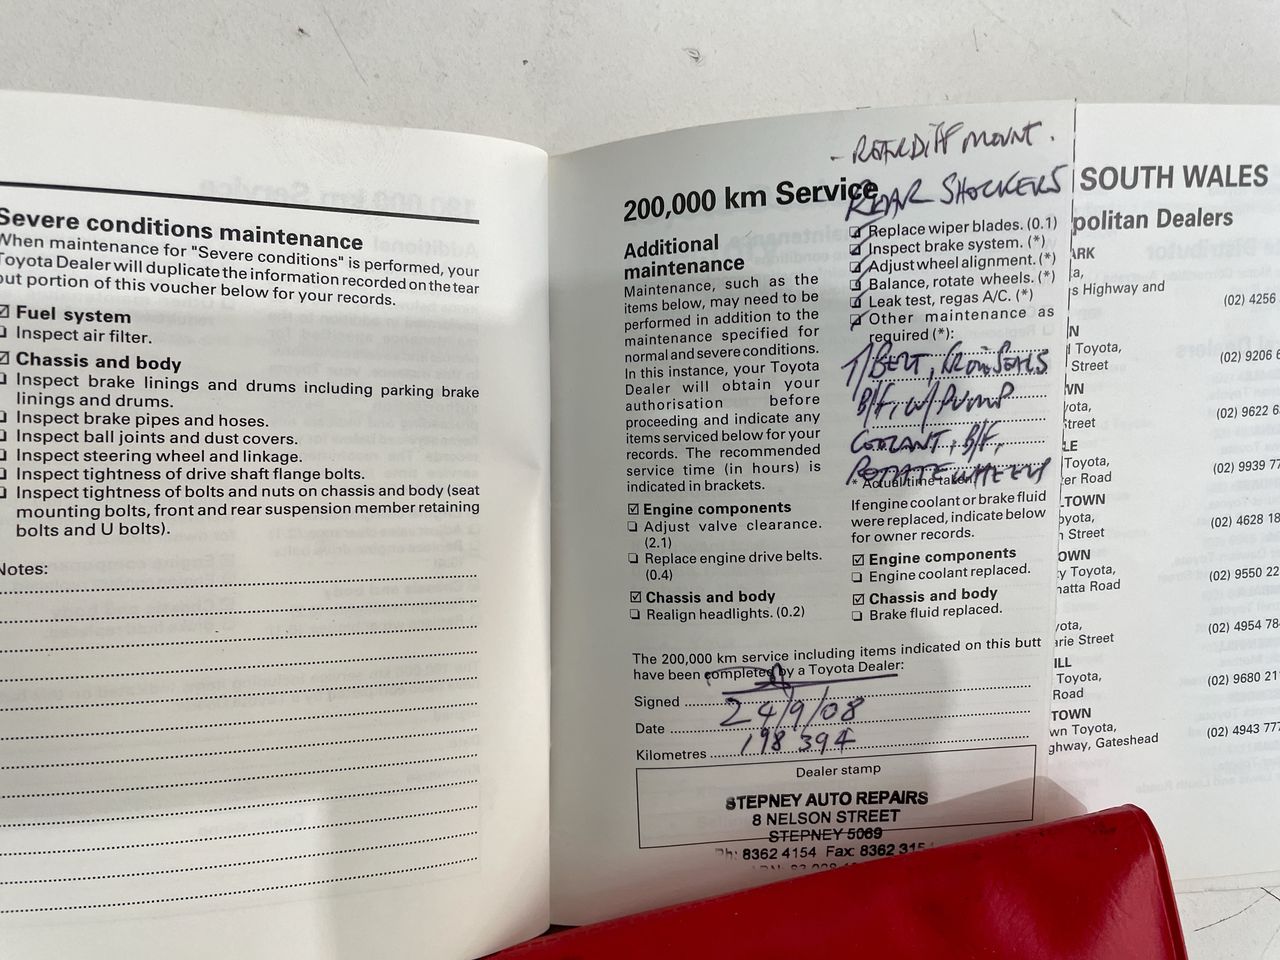 Severe conditions maintenance
When maintenance for "Severe conditions" is performed, your
Toyota Dealer will duplicate the information recorded on the tear
out portion of this voucher below for your records.
☑ Fuel system
❏ Inspect air filter.
☑ Chassis and body
❏ Inspect brake linings and drums including parking brake
linings and drums.
❏ Inspect brake pipes and hoses.
❏ Inspect ball joints and dust covers.
❏ Inspect steering wheel and linkage.
❏ Inspect tightness of drive shaft flange bolts.
❏ Inspect tightness of bolts and nuts on chassis and body (seat
mounting bolts, front and rear suspension member retaining
bolts and U bolts).
Notes:
200,000 km Service
Additional
maintenance
Maintenance, such as the
items below, may need to be
performed in addition to the
maintenance specified for
normal and severe conditions.
In this instance, your Toyota
Dealer will obtain your
authorisation before
proceeding and indicate any
items serviced below for your
records. The recommended
service time (in hours) is
indicated in brackets.
☑ Engine components
❏ Adjust valve clearance.
(2.1)
❏ Replace engine drive belts.
(0.4)
☑ Chassis and body
❏ Realign headlights. (0.2)
- REAR DIFF MOUNT.
REAR SHOCKERS
❏ Replace wiper blades. (0.1)
❏ Inspect brake system. (*)
❏ Adjust wheel alignment. (*)
❏ Balance, rotate wheels. (*)
❏ Leak test, regas A/C. (*)
❏ Other maintenance as
required (*):
T/BELT, SEALS
B/F, W/PUMP
COOLANT, B/F,
ROTATE WHEELS
* Actual time taken
If engine coolant or brake fluid
were replaced, indicate below
for owner records.
☑ Engine components
❏ Engine coolant replaced.
☑ Chassis and body
❏ Brake fluid replaced.
The 200,000 km service including items indicated on this butt
have been completed by a Toyota Dealer:
Signed
Date 24/9/08
Kilometres 198 394
Dealer stamp
STEPNEY AUTO REPAIRS
8 NELSON STREET
STEPNEY 5069
Ph: 8362 4154 Fax: 8362 315
SOUTH WALES
politan Dealers
ARK
a,
s Highway and
(02) 4256
N
Toyota,
Street
(02) 9206 6
WN
yota,
Street
(02) 9622 6
LE
Toyota,
er Road
(02) 9939 77
TOWN
oyota,
n Street
(02) 4628 18
OWN
y Toyota,
matta Road
(02) 9550 22
yota,
arie Street
(02) 4954 78
ILL
Toyota,
Road
(02) 9680 21
TOWN
wn Toyota,
ghway, Gateshead
(02) 4943 777